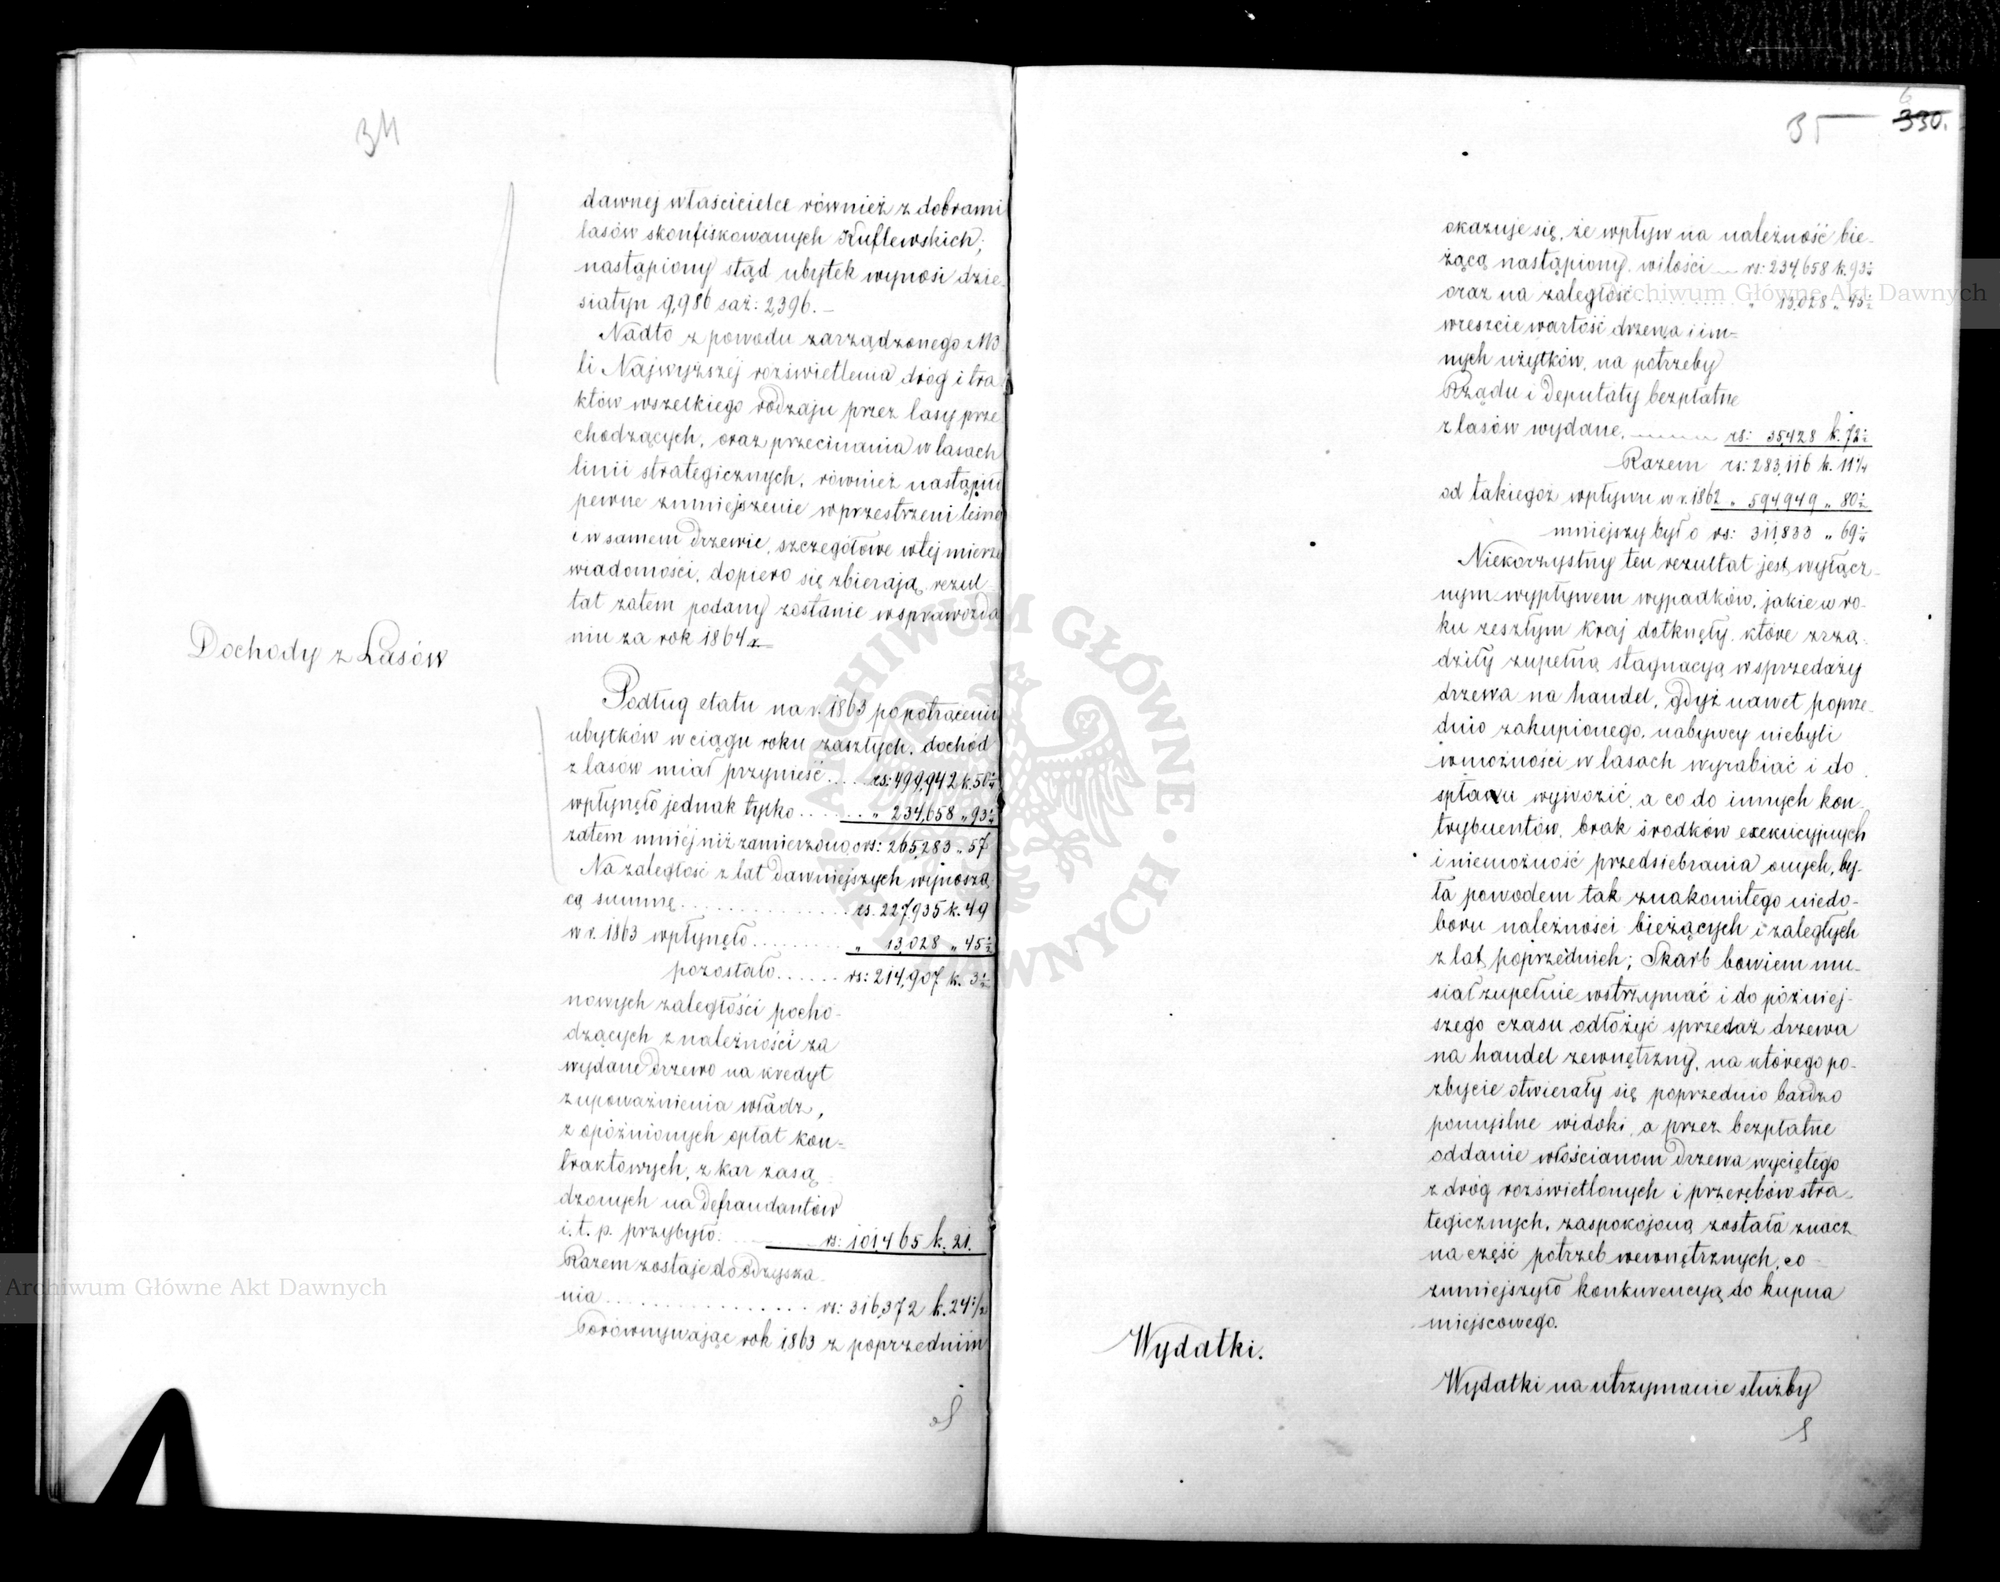 34
dawnej właścicielce również z dobrami
lasów skonfiskowanych Kuflewskich;
nastąpiony stąd ubytek wynosi dzie-
siatyn 9,986 saż: 2,396.—
Nadto z powodu zarządzonego z Wo
li Najwyższej rozświetlenia dróg i tra
któw wszelkiego rodzaju przez lasy prze
chodzących, oraz przecinania w lasach
linii strategicznych, również nastąpiło
pewne zmniejszenie w przestrzeni leśnej
i w samem drzewie, szczegółowe w tej mierze
wiadomości, dopiero się zbierają, rezul
tat zatem podany zostanie w sprawozda
niu za rok 1864 r.
Dochody z Lasów
Podług etatu na r. 1863 po potrąceniu
ubytków w ciągu roku zaszłych, dochód
z lasów miał przynieść.... rs: 499,942 k. 50½
wpłynęło jednak tylko...... „ 234,658 „ 93½
zatem mniej niż zamierzono o rs: 265,283 „ 57
Na zaległość z lat dawniejszych wynoszą
cą summę............... rs. 227,935 k. 49
w r. 1863 wpłynęło......... „ 13,028 „ 45½
pozostało...... rs: 214,907 k. 3½
nowych zaległości pocho-
dzących z należności za
wydane drzewo na kredyt
z upoważnienia władz,
z opóźnionych opłat kon=
traktowych, z kar zasą-
dzonych na defraudantów
i. t. p. przybyło. rs: 101,465 k. 21.
Razem zostaje do odzyska-
nia................. rs: 316,372 k. 24½
Porównywając rok 1863 z poprzednim
35 330.
okazuje się, że wpływ na należność bie-
żącą nastąpiony, w ilości — rs: 234,658 k. 93½
oraz na zaległość „ 13,028 „ 45½
wreszcie wartość drzewa i in=
nych użytków, na potrzeby
Rządu i deputaty bezpłatne
z lasów wydane, rs: 35,428 k. 72½
Razem rs: 283,116 k. 11¼
od takiegoż wpływu w r. 1862 „ 594,949 „ 80½
mniejszy było rs: 311,833 „ 69¼
Niekorzystny ten rezultat jest wyłącz-
nym wypływem wypadków, jakie w ro-
ku zeszłym kraj dotknęły, które zrzą-
dziły zupełną stagnacyą w sprzedaży
drzewa na handel, gdyż nawet poprze-
dnio zakupionego, nabywcy niebyli
w możności w lasach wyrabiać i do
spławu wywozić, a co do innych kon-
trybuentów, brak środków exekucyjnych
i niemożność przedsiebrania onych, by-
ła powodem tak znakomitego niedo-
boru należności bieżących i zaległych
z lat poprzednich; Skarb bowiem mu-
siał zupełnie wstrzymać i do później-
szego czasu odłożyć sprzedaż drzewa
na handel zewnętrzny, na którego po-
zbycie otwierały się poprzednio bardzo
pomyślne widoki, a przez bezpłatne
oddanie włościanom drzewa wyciętego
z dróg rozświetlonych i przerębów stra-
tegicznych, zaspokojoną została znacz-
na część potrzeb wewnętrznych, co
zmniejszyło konkurencyą do kupna
miejscowego.
Wydatki.
Wydatki na utrzymanie służby
Archiwum Główne Akt Dawnych
Archiwum Główne Akt Dawnych
ARCHIWUM GŁÓWNE AKT DAWNYCH